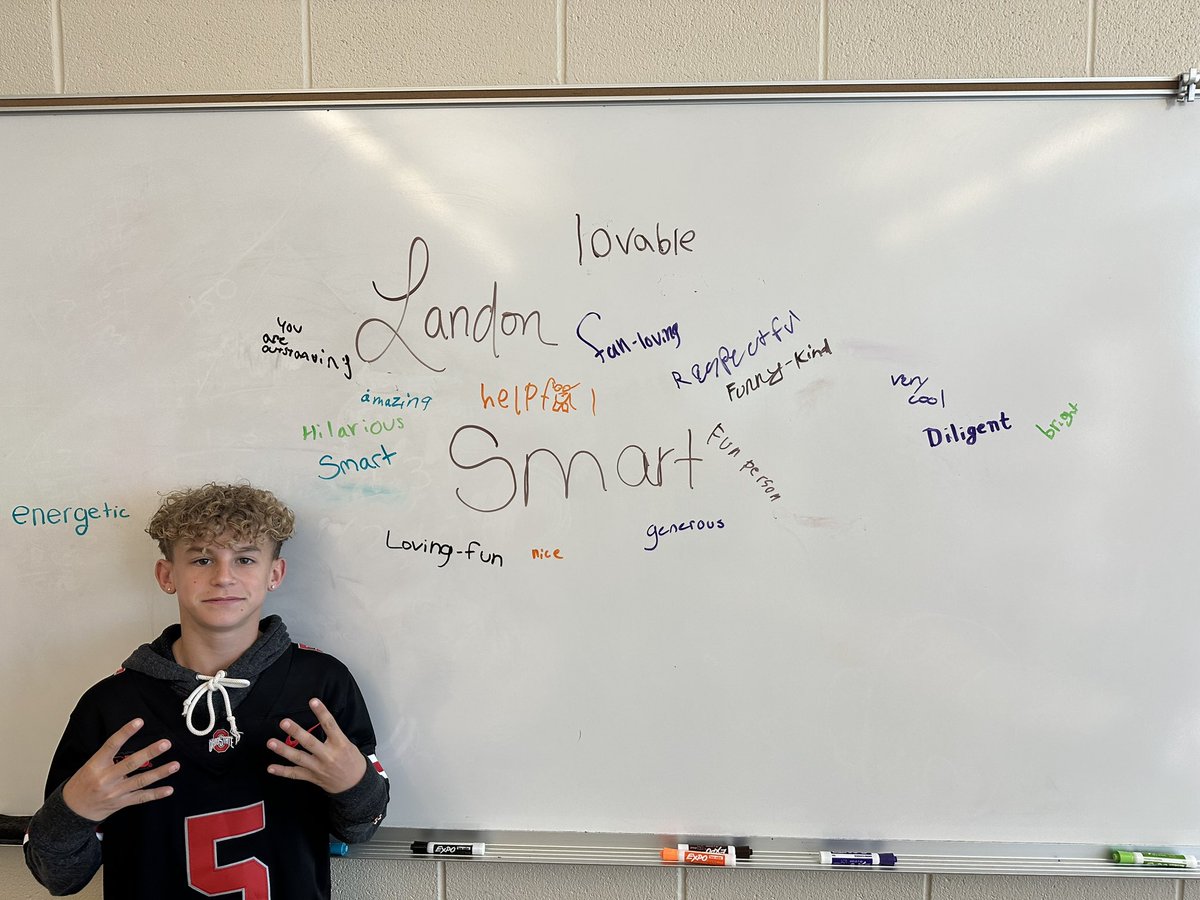 lovable
Landon
fun-loving
Respectful
Funny-Kind
You
are
outstanding
amazing
helpful
very
cool
Diligent
bright
Hilarious
Smart
Smart
Fun person
energetic
Loving-fun
nice
generous
OHIO STATE
5
EXPO
EXPO
EXPO